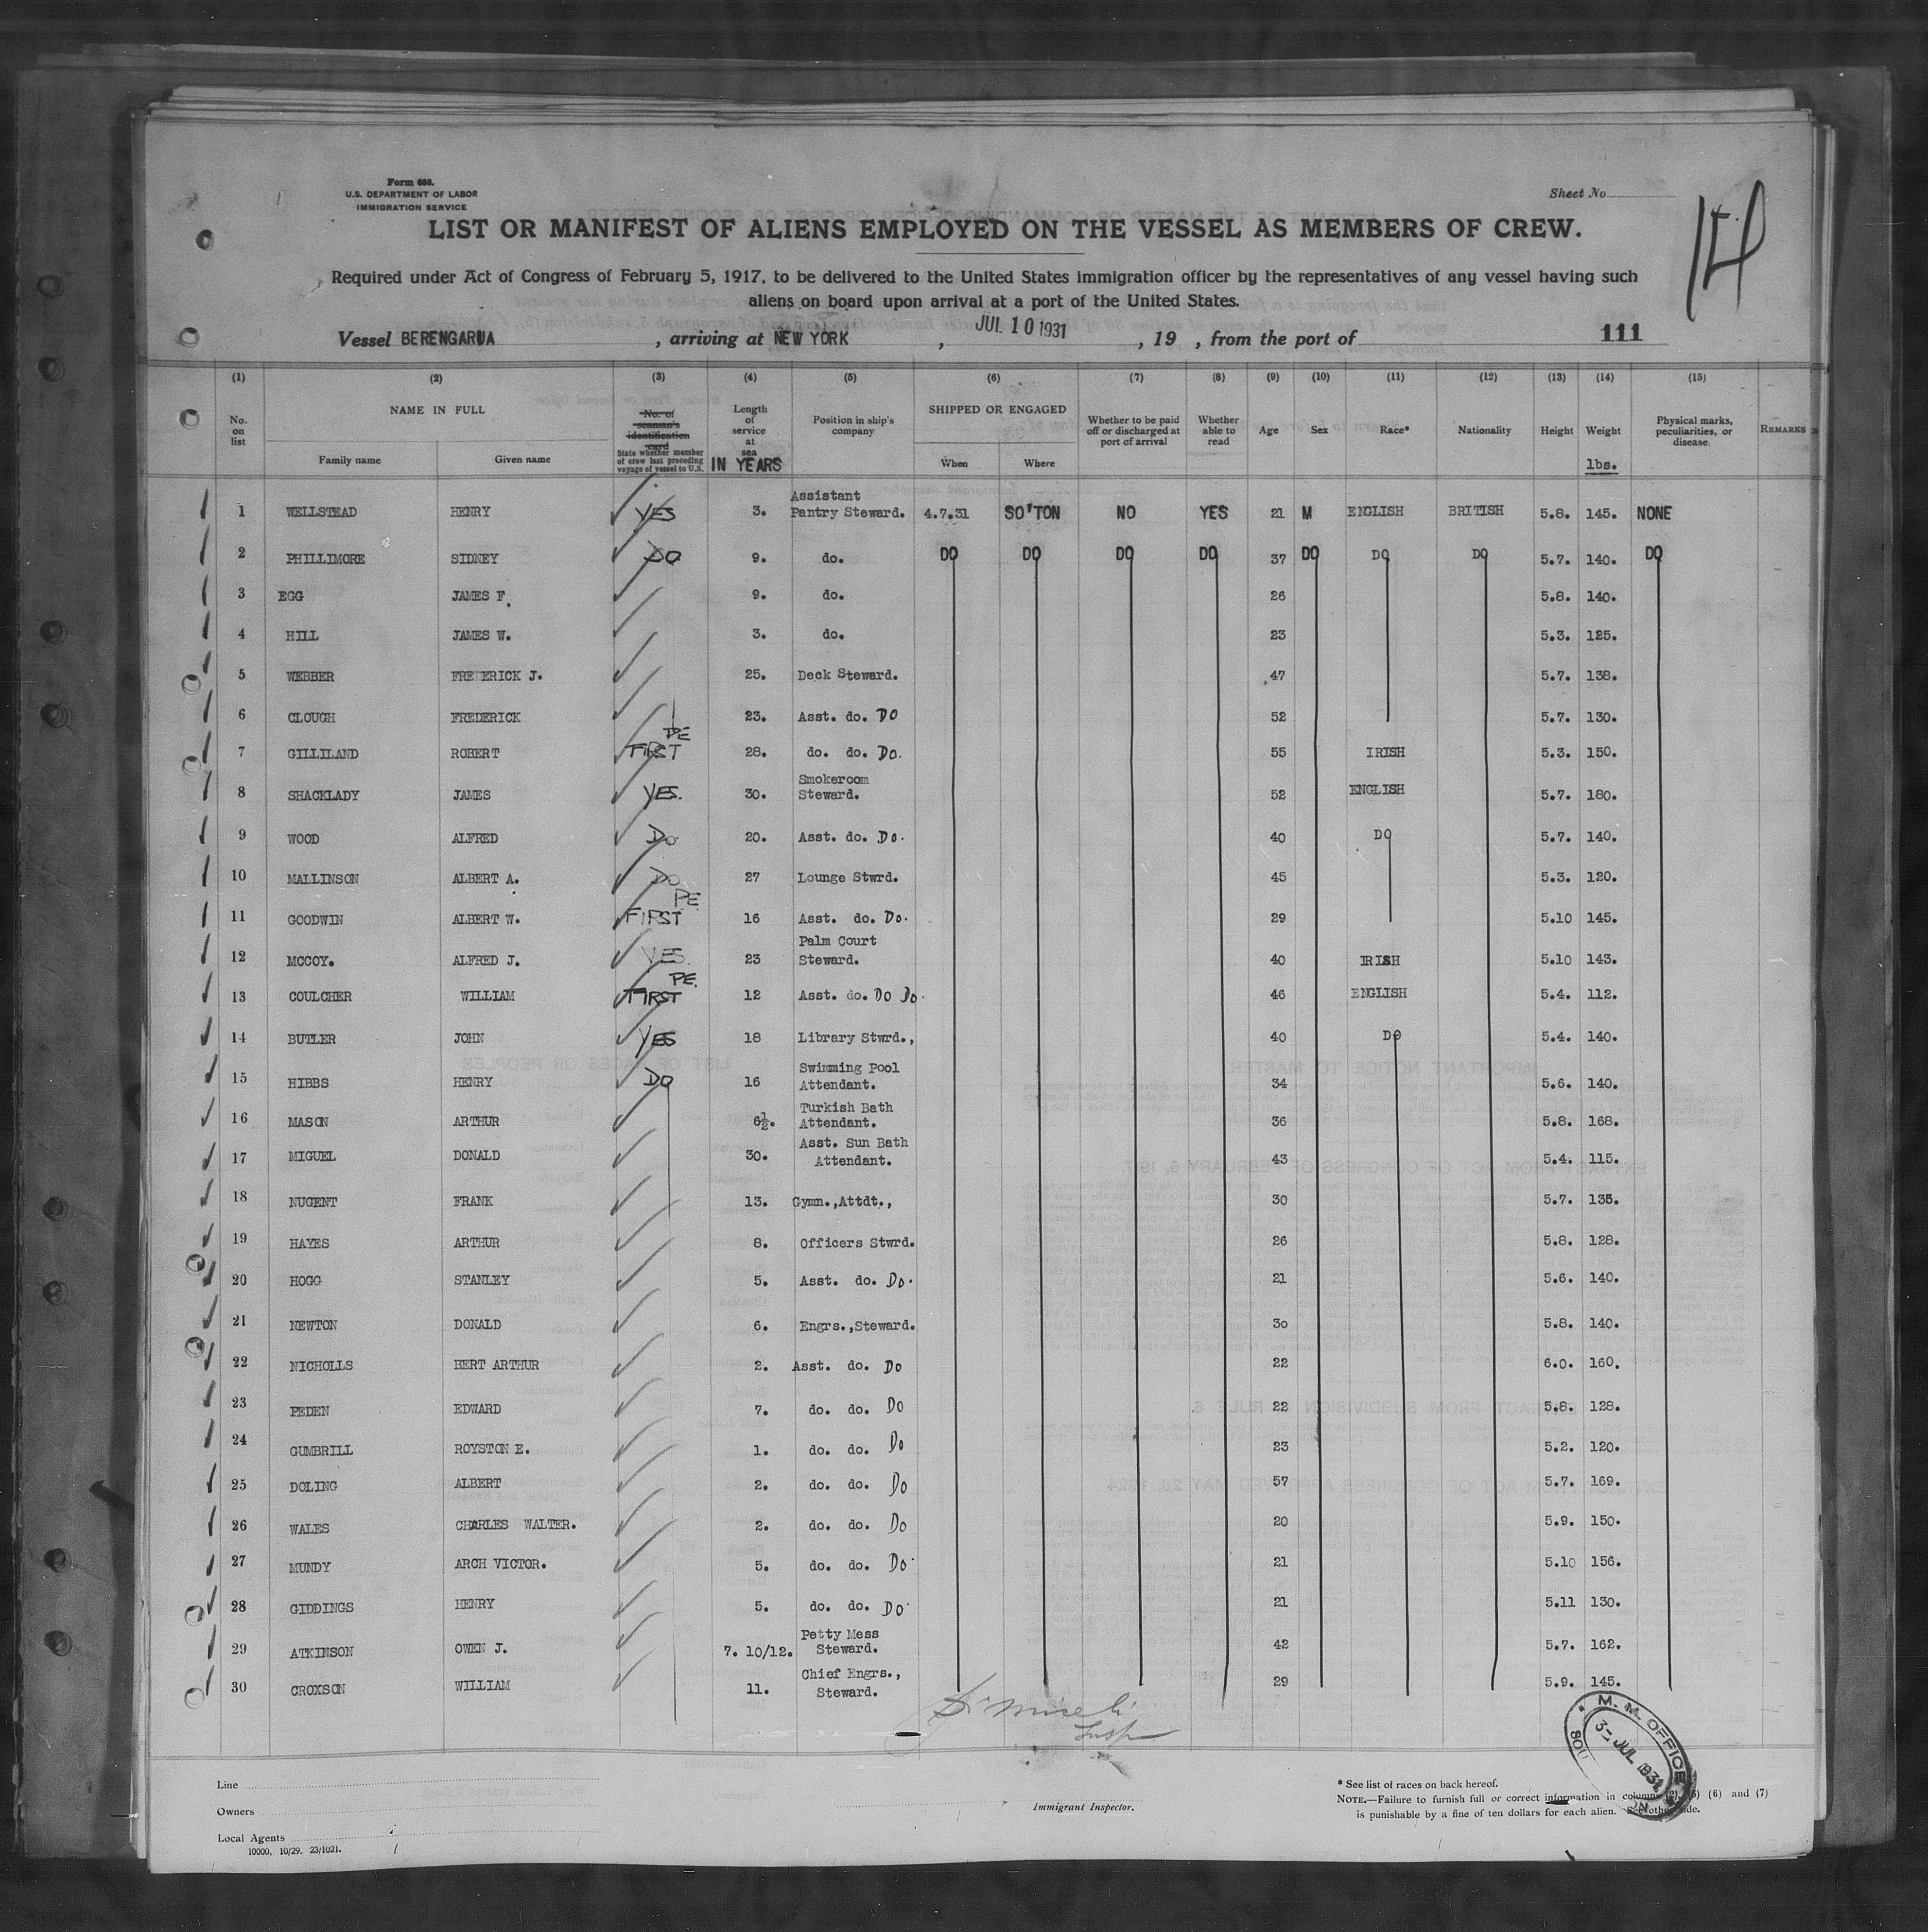 Form 680.
U.S. DEPARTMENT OF LABOR
IMMIGRATION SERVICE
Sheet No
14
LIST OR MANIFEST OF ALIENS EMPLOYED ON THE VESSEL AS MEMBERS OF CREW.
Required under Act of Congress of February 5, 1917, to be delivered to the United States immigration officer by the representatives of any vessel having such
aliens on board upon arrival at a port of the United States.
Vessel BERENGARIA, arriving at NEW YORK, JUL 10 1931, 19 , from the port of 111
(1) (2) (3) (4) (5) (6) (7) (8) (9) (10) (11) (12) (13) (14) (15)
No. on list NAME IN FULL Family name Given name No. of seaman's identification card State whether member of crew last preceding voyage of vessel to U.S. Length of service at sea IN YEARS Position in ship's company SHIPPED OR ENGAGED When Where Whether to be paid off or discharged at port of arrival Whether able to read Age Sex Race* Nationality Height Weight lbs. Physical marks, peculiarities, or disease. REMARKS
1 WELLSTEAD HENRY YES 3. Assistant Pantry Steward. 4.7.31 SO'TON NO YES 21 M ENGLISH BRITISH 5.8. 145. NONE
2 PHILLIMORE SIDNEY DO 9. do. DO DO DO DO 37 DO DO DO 5.7. 140. DO
3 EGG JAMES F. 9. do. 26 5.8. 140.
4 HILL JAMES W. 3. do. 23 5.3. 125.
5 WEBBER FREDERICK J. 25. Deck Steward. 47 5.7. 138.
6 CLOUGH FREDERICK 23. Asst. do. DO 52 5.7. 130.
7 GILLILAND ROBERT FIRST 28. do. do. DO. 55 IRISH 5.3. 150.
8 SHACKLADY JAMES YES. 30. Smokeroom Steward. 52 ENGLISH 5.7. 180.
9 WOOD ALFRED Do. 20. Asst. do. Do. 40 DO 5.7. 140.
10 MALLINSON ALBERT A. DO 27 Lounge Stwrd. 45 5.3. 120.
11 GOODWIN ALBERT W. FIRST PE 16 Asst. do. Do. 29 5.10 145.
12 MCCOY. ALFRED J. YES. 23 Palm Court Steward. 40 IRISH 5.10 143.
13 COULCHER WILLIAM FIRST PE. 12 Asst. do. DO Do. 46 ENGLISH 5.4. 112.
14 BUTLER JOHN YES 18 Library Stwrd., 40 DO 5.4. 140.
15 HIBBS HENRY DO 16 Swimming Pool Attendant. 34 5.6. 140.
16 MASON ARTHUR 6½. Turkish Bath Attendant. 36 5.8. 168.
17 MIGUEL DONALD 30. Asst. Sun Bath Attendant. 43 5.4. 115.
18 NUGENT FRANK 13. Gymn.,Attdt., 30 5.7. 135.
19 HAYES ARTHUR 8. Officers Stwrd. 26 5.8. 128.
20 HOGG STANLEY 5. Asst. do. Do. 21 5.6. 140.
21 NEWTON DONALD 6. Engrs.,Steward. 30 5.8. 140.
22 NICHOLLS BERT ARTHUR 2. Asst. do. DO 22 6.0. 160.
23 PEDEN EDWARD 7. do. do. DO 22 5.8. 128.
24 GUMBRILL ROYSTON E. 1. do. do. Do 23 5.2. 120.
25 DOLING ALBERT 2. do. do. Do 57 5.7. 169.
26 WALES CHARLES WALTER. 2. do. do. Do 20 5.9. 150.
27 MUNDY ARCH VICTOR. 5. do. do. Do. 21 5.10 156.
28 GIDDINGS HENRY 5. do. do. DO. 21 5.11 130.
29 ATKINSON OWEN J. 7. 10/12. Petty Mess Steward. 42 5.7. 162.
30 CROXSON WILLIAM 11. Chief Engrs., Steward. 29 5.9. 145.
M. M. OFFICE
3- JUL 1931
Line
Owners
Local Agents
10000, 10/29. 23/1021.
Immigrant Inspector.
* See list of races on back hereof.
NOTE.—Failure to furnish full or correct information in columns (2), (5) (6) and (7)
is punishable by a fine of ten dollars for each alien. See other side.